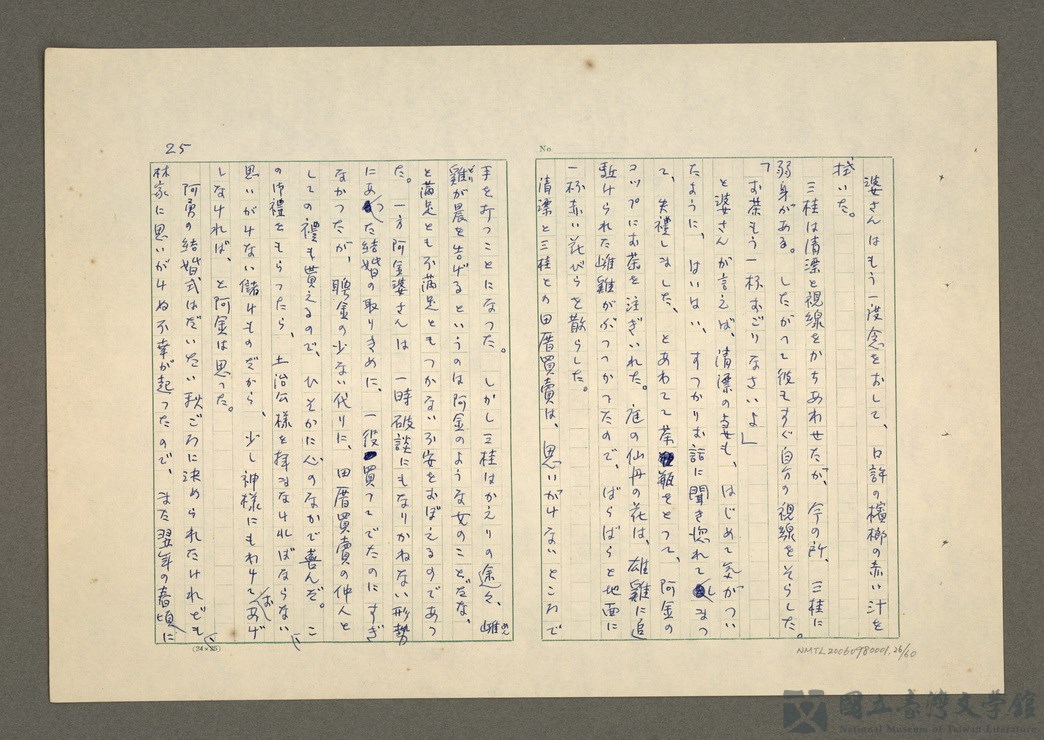 婆さんはもう一度念をおして、口許の檳榔の赤い汁を
拭いた。
三桂は清漂と視線をかちあわせたが、今の所、三桂に
弱身がある。したがつて彼もすぐ自分の視線をそらした。
「お茶もう一杯おごりなさいよ」
と婆さんが言えば、清漂の妻も、はじめて気がつい
たように、はいはい、すつかりお話に聞き惚れてしまつ
て、失禮しました、とあわてて茶瓶をとつて、阿金の
コップにお茶を注ぎいれた。庭の仙丹の花は、雄雞に追
駈けられた雌雞がつつかつたので、ばらばらと地面に
一杯赤い花びらを散らした。
清漂と三桂との田厝買賣は、思いがけないところで
手を打つことになつた。しかし三桂はかえりの途々、雌
雞が晨を告げるというのは阿金のような女のことだな、
と滿足とも不滿足ともつかない不安をおぼえるのであつ
た。一方阿金婆さんは一時破談にもなりかねない形勢
にあつた結婚の取りきめに、一役買つてでたのにすぎ
なかつたが、聘金の少ない代りに、田厝買賣の仲人と
しての禮も貰えるので、ひそかに心のなかで喜んだ。こ
の御禮をもらつたら、土治公様を拝まなければならない、
思いがけない儲けものだから、少し神様にもわけておあげ
しなければ、と阿金は思つた。
阿勇の結婚式はだいたい秋ごろに決められたけれども、
林家に思いがけぬ不幸が起つたので、また翌年の春頃に
25
No.
(24×25)
NMTL20060980001,26/60
國立臺灣文學館
National Museum of Taiwan Literature